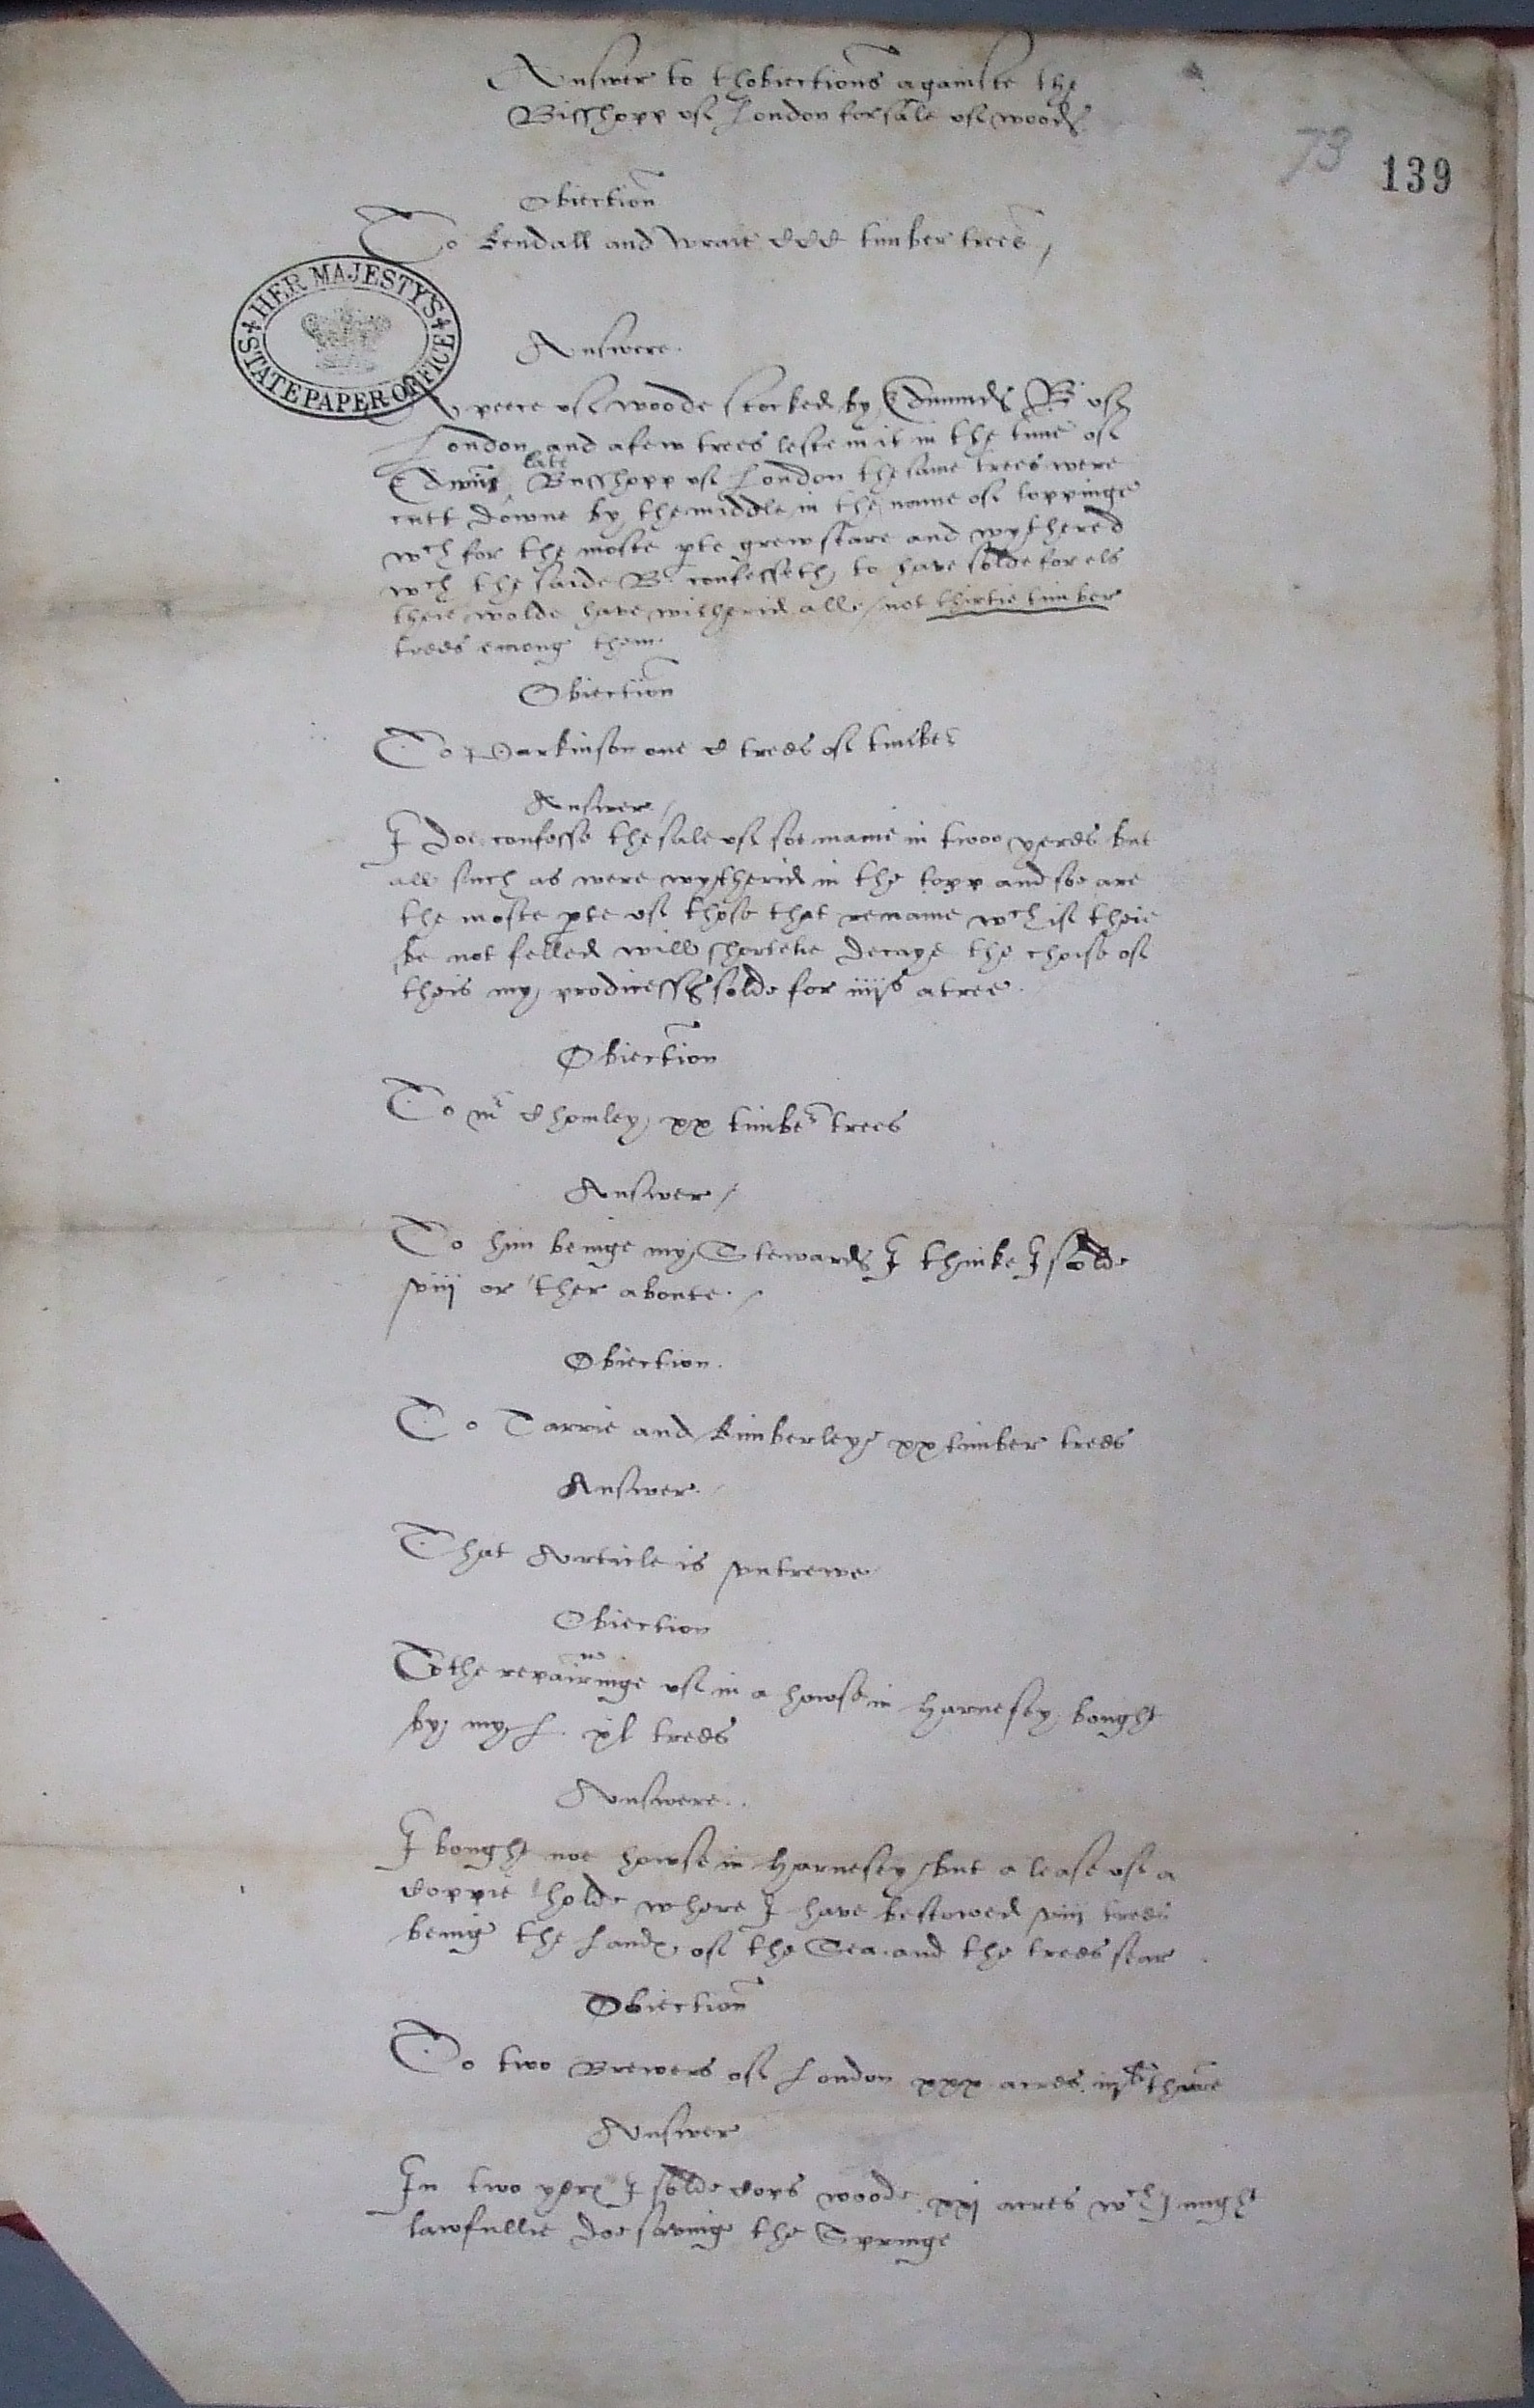 Answer to thobiections againste the
Bisshopp of London for sale of woods
73
139
Obiection
To Kendall and Wraie CCC timber trees /
HER MAJESTY'S STATE PAPER OFFICE
Answere.
A peece of woode stocked by Edmunde B of
London and a few trees lefte in it in the time of
late
Edwin Busshopp of London the same trees were
cutt downe by the middle in the name of loppinge
wch for the moste pte grew seare and wythered
wch the saide B. confesseth to have solde for els
theie wolde have witherid all / not thirtie timber
trees emong them.
Obiection
To Parkinson one C trees of timber
Answer /
I doe confesse the sale of soe manie in twoo yeres but
all such as were wytherid in the topp and soe are
the moste pte of those that remaine wch if theie
be not felled will shortelie decaye the choise of
theis my predicessrs solde for iiijs a tree.
Obiection
To mr Chomley xx timber trees
Answer /
To him beinge my Stewarde I thinke I solde
viij or ther aboute. /
Obiection.
To Tarrie and Kimberleye xx timber trees
Answer.
That Article is vntrewe
Obiection
To the repairinge of in a howse in Harnesey bought
by my L. xl trees
Answere..
I bought noe howse in Harnesey but a lease of a
Coppie holde where I have bestowed viij trees
being the Lande of the Sea. and the trees sear
Obiection
To two Brewers of London xxx acres
Answer
In two yers I solde Cops woode xxj acres wch I might
lawfullie doe saving the Springe